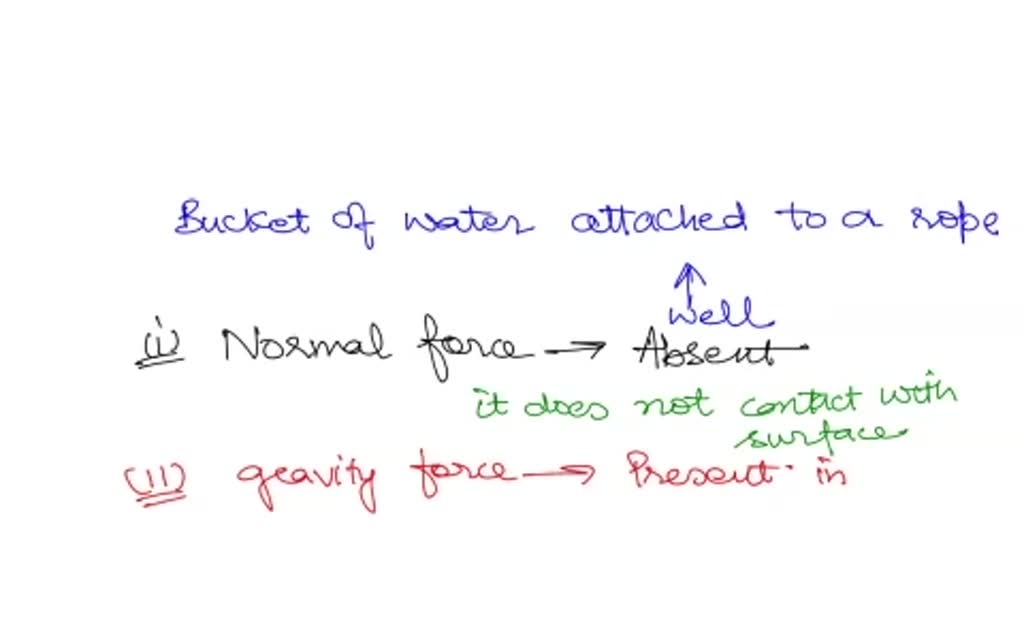 Bucket of water attached to a rope
↑
well
(i) Normal force → Absent
it does not contact with
surface
(ii) gravity force → Present in